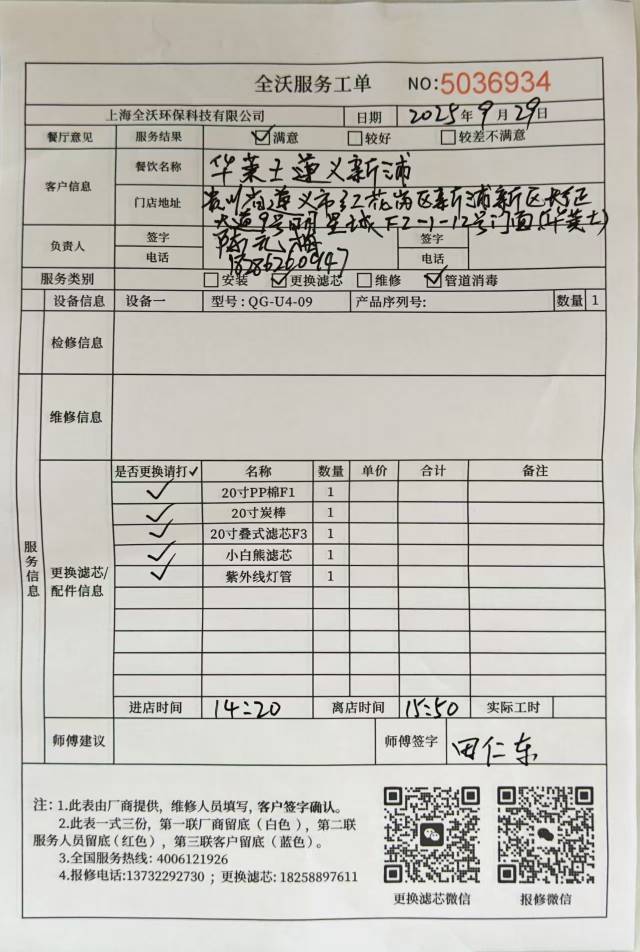 全沃服务工单 NO:5036934
上海全沃环保科技有限公司 日期 2025年9月29日
餐厅意见 服务结果 ☑满意 □较好 □较差不满意
客户信息 餐饮名称 华莱士遵义新浦
门店地址 贵州省遵义市红花岗区新蒲新区
大道9号明星城F2-1-12号门面(华莱士)
负责人 签字 签字
电话 18286260947 电话
服务类别 □安装 ☑更换滤芯 □维修 ☑管道消毒
设备信息 设备一 型号: QG-U4-09 产品序列号: 数量 1
检修信息
维修信息
服务信息
更换滤芯/
配件信息
是否更换请打✓ 名称 数量 单价 合计 备注
✓ 20寸PP棉F1 1
✓ 20寸炭棒 1
✓ 20寸叠式滤芯F3 1
✓ 小白熊滤芯 1
✓ 紫外线灯管 1
进店时间 14:20 离店时间 15:50 实际工时
师傅建议 师傅签字 田仁东
注: 1.此表由厂商提供，维修人员填写，客户签字确认。
2.此表一式三份，第一联厂商留底（白色），第二联
服务人员留底（红色），第三联客户留底（蓝色）。
3.全国服务热线: 4006121926
4.报修电话:13732292730 ; 更换滤芯: 18258897611
更换滤芯微信 报修微信